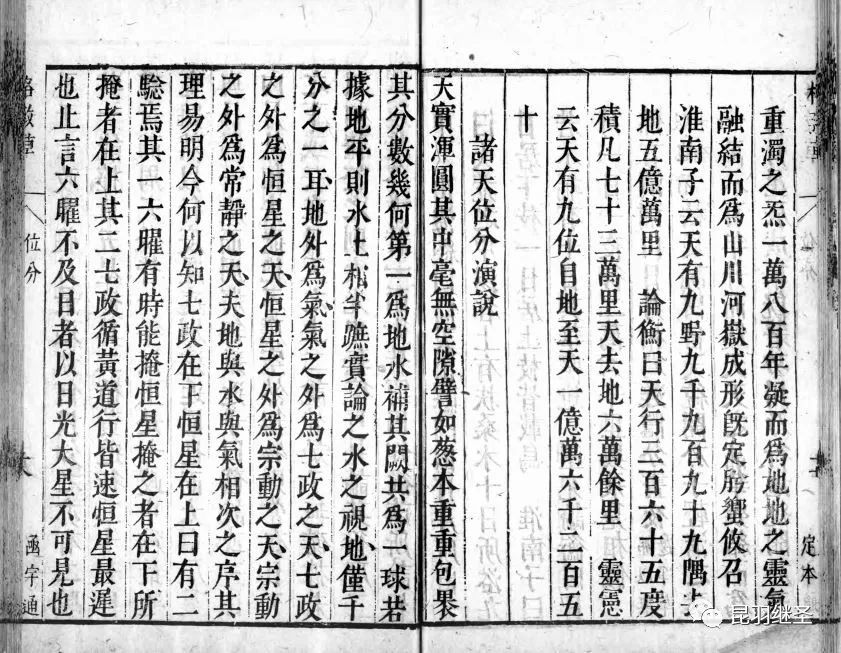 重濁之炁一萬八百年凝而爲地地之靈氣
融結而爲山川河嶽成形旣定肹蠁攸召
淮南子云天有九野九千九百九十九隅去
地五億萬里 論衡曰天行三百六十五度
積凡七十三萬里天去地六萬餘里 靈憲
云天有九位自地至天一億萬六千二百五
十
諸天位分演說
天實渾圓其中毫無空隙譬如葱本重重包褁
其分數幾何第一爲地水補其闕共爲一球若
據地平則水土相半蹠實論之水之視地僅千
分之一耳地外爲氣氣之外爲七政之天七政
之外爲恒星之天恒星之外爲宗動之天宗動
之外爲常靜之天夫地與水與氣相次之序其
理易明今何以知七政在下恒星在上曰有二
騐焉其一六曜有時能掩恒星掩之者在下所
掩者在上其二七政循黃道行皆速恒星最遲
也止言六曜不及日者以日光大星不可見也
位分
定本
格致草
位分
函宇通
昆羽继圣